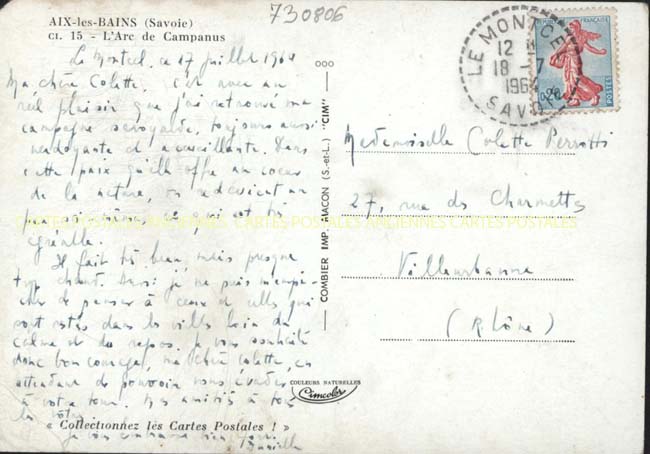 AIX-les-BAINS (Savoie)
CL. 15 - L'Arc de Campanus
730806
Le Montcel, ce 17 juillet 1964
Ma chère Colette, c'est avec un
réel plaisir que j'ai retrouvé ma
campagne savoyarde, toujours aussi
verdoyante et accueillante. Dans
cette paix qu'elle offre au coeur
de la nature, on redevient un
peu soi-même, ce qui est très
agréable.
Il fait très beau, mais presque
trop chaud. Aussi je ne puis m'empê-
cher de penser à ceux et celles qui
sont restés dans les villes loin du
calme et du repos. Je vous souhaite
donc bon courage, ma chère Colette, en
attendant de pouvoir vous évader
à votre tour. Mes amitiés à tous
les vôtres
Je vous embrasse bien
« Collectionnez les Cartes Postales ! »
COMBIER IMP. MACON (S.-et-L.) "CIM"
COULEURS NATURELLES
Cimcolor
LE MONTCEL
12 H
18 - 7
1964
SAVOIE
FRANÇAISE
0,20
POSTES
Mademoiselle Colette Perrotti
27, rue des Charmettes
Villeurbanne
(Rhône)
CARTES POSTALES ANCIENNES CARTES POSTALES ANCIENNES CARTES POSTALES